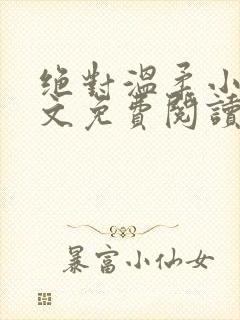 絕對溫柔小
文免費閱讀
暴富小仙女